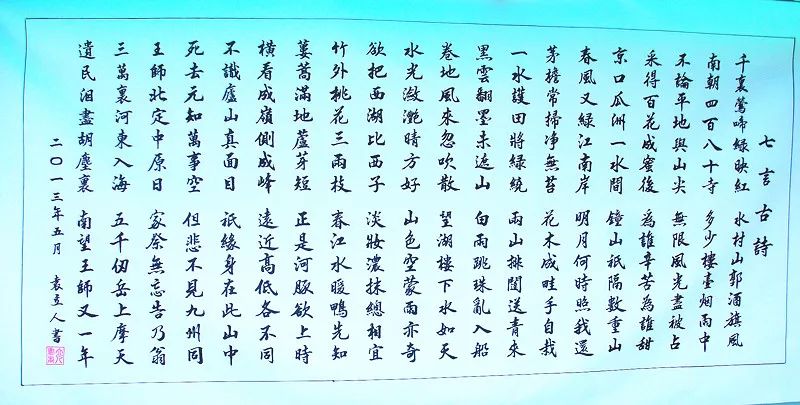 七言古詩
千裏鶯啼綠映紅 水村山郭酒旗風
南朝四百八十寺 多少樓臺烟雨中
不論平地與山尖 無限風光盡被占
采得百花成蜜後 為誰辛苦為誰甜
京口瓜洲一水間 鐘山祇隔數重山
春風又綠江南岸 明月何時照我還
茅檐常掃净無苔 花木成畦手自栽
一水護田將綠繞 兩山排闥送青來
黑雲翻墨未遮山 白雨跳珠亂入船
卷地風來忽吹散 望湖樓下水如天
水光瀲灧晴方好 山色空蒙雨亦奇
欲把西湖比西子 淡妝濃抹總相宜
竹外桃花三兩枝 春江水暖鴨先知
蔞蒿滿地蘆芽短 正是河豚欲上時
橫看成嶺側成峰 遠近高低各不同
不識廬山真面目 祇緣身在此山中
死去元知萬事空 但悲不見九州同
王師北定中原日 家祭無忘告乃翁
三萬裏河東入海 五千仞岳上摩天
遺民泪盡胡塵裏 南望王師又一年
二〇一三年五月 袁立人書